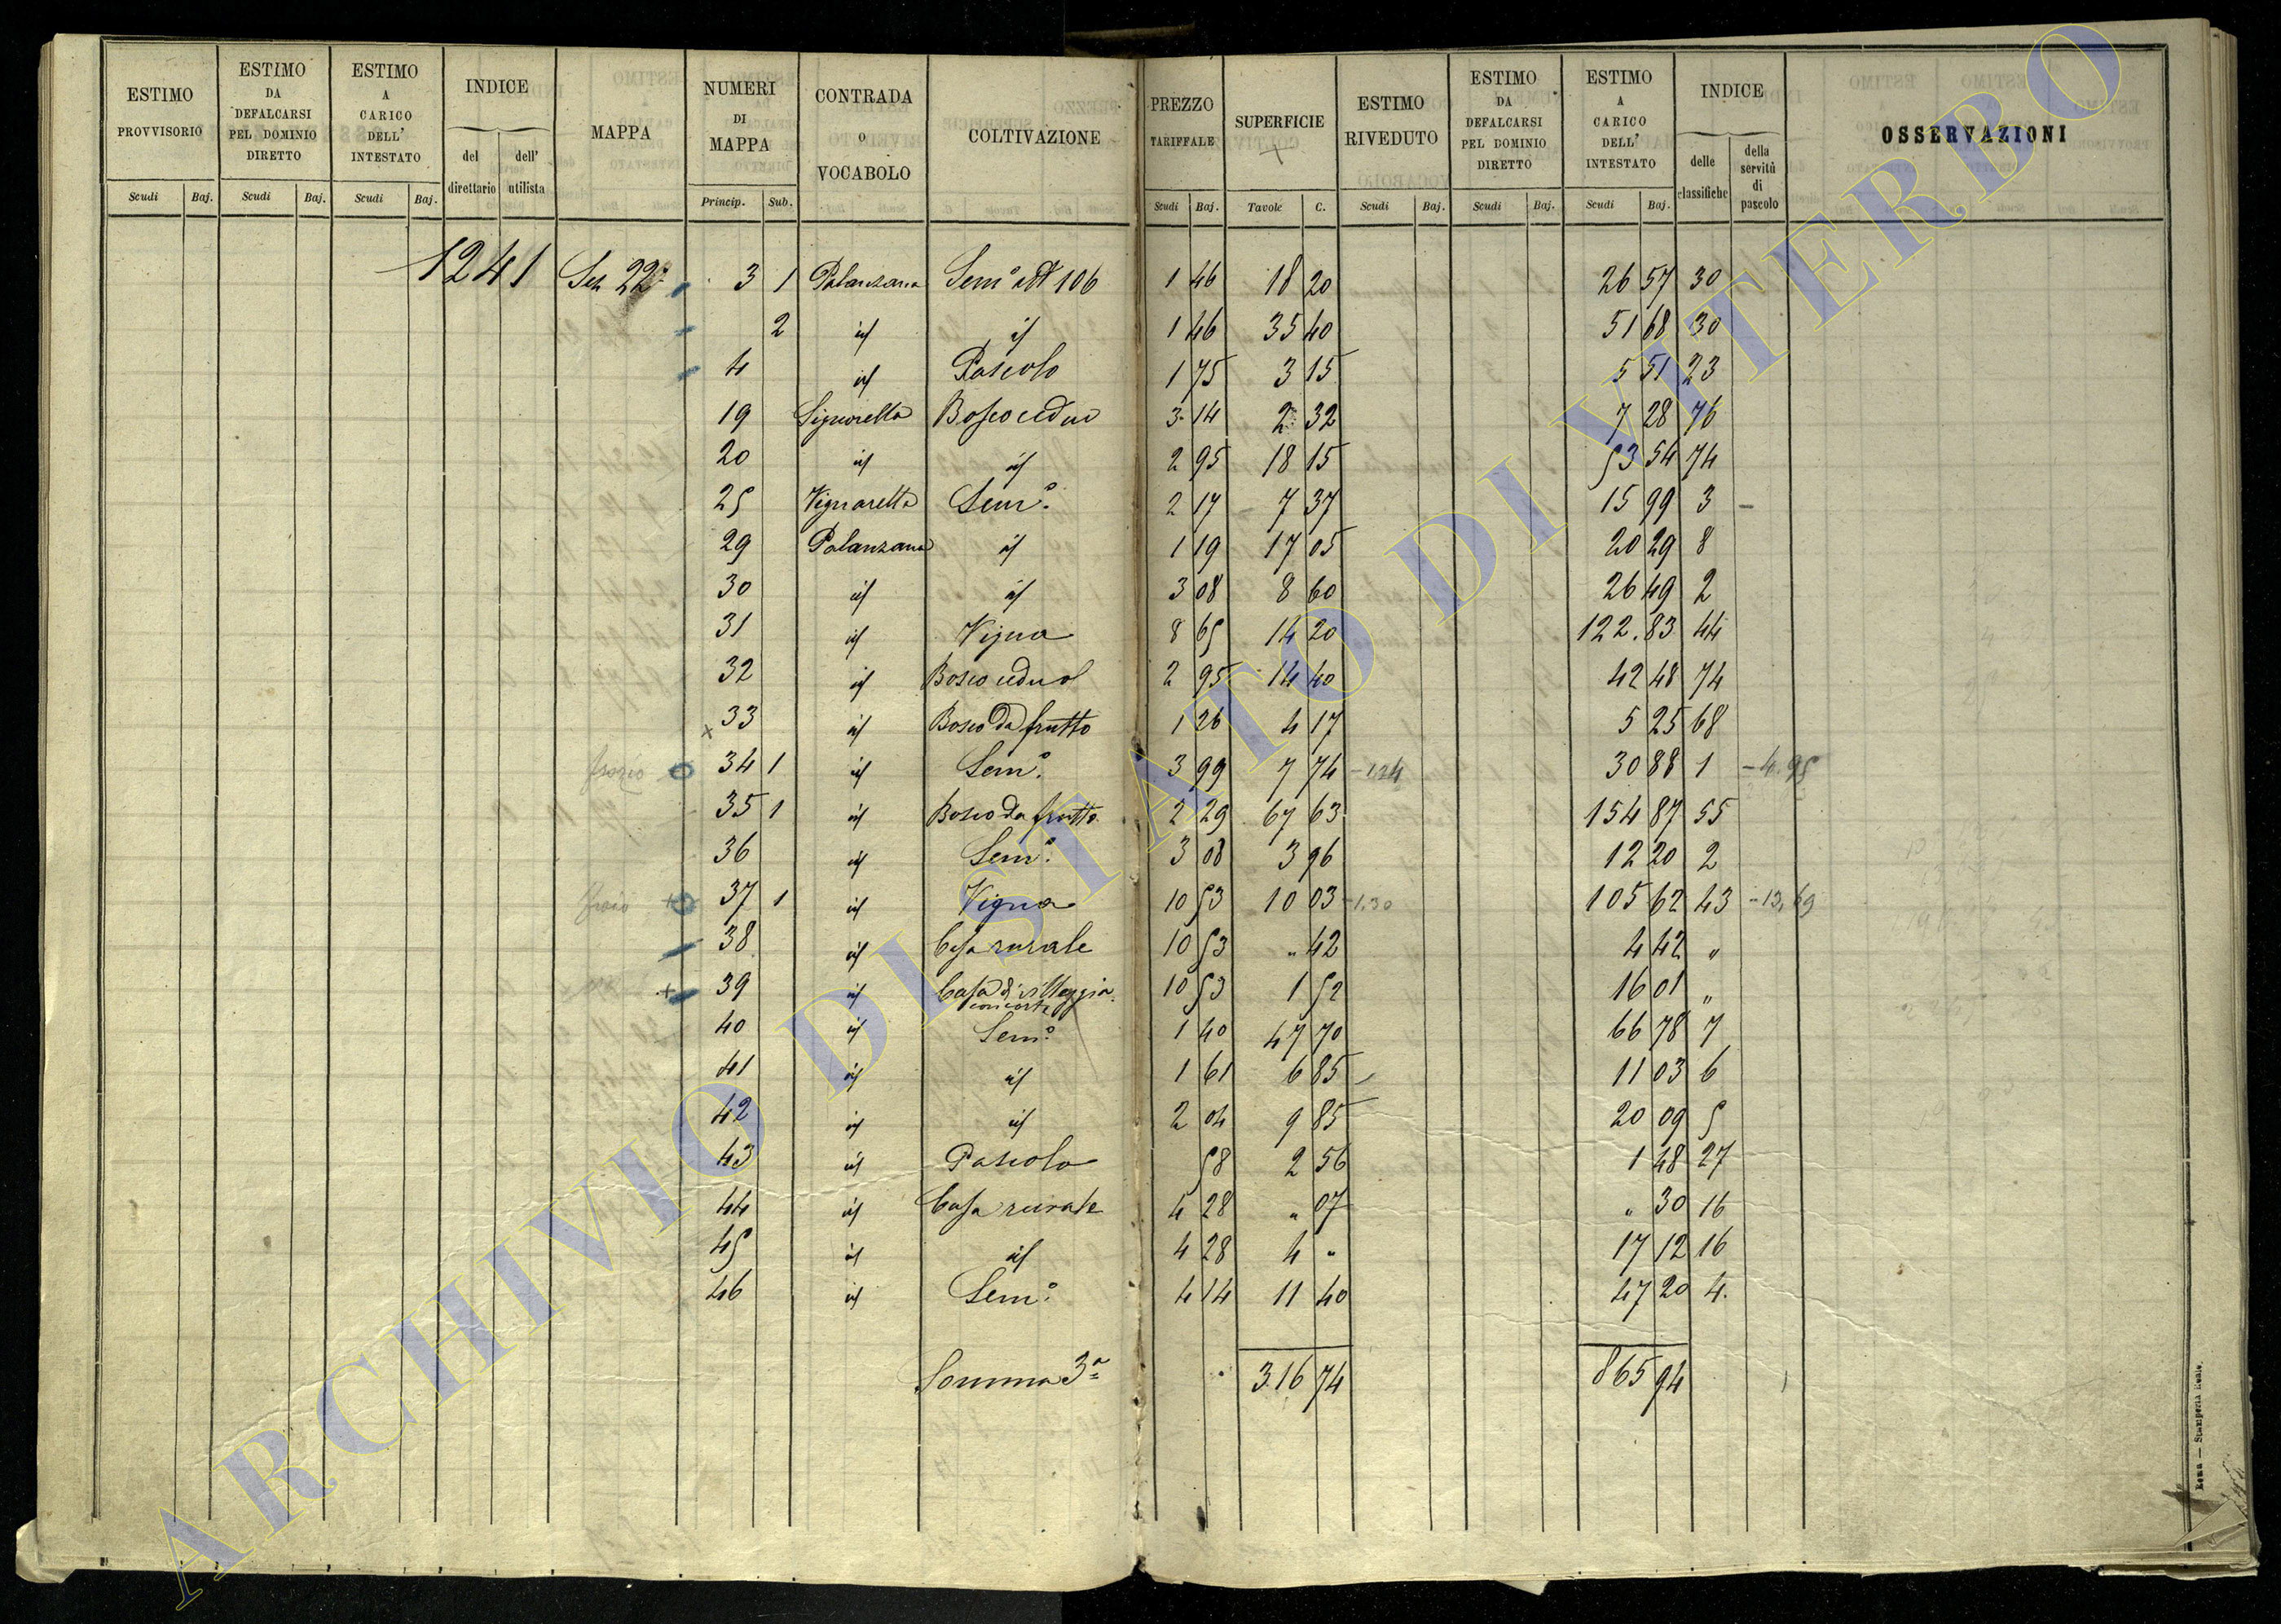 ESTIMO PROVVISORIO Scudi Baj. | ESTIMO DA DEFALCARSI PEL DOMINIO DIRETTO Scudi Baj. | ESTIMO A CARICO DELL' INTESTATO Scudi Baj. | INDICE del direttario dell' utilista | MAPPA | NUMERI DI MAPPA Princip. Sub. | CONTRADA O VOCABOLO | COLTIVAZIONE | PREZZO TARIFFALE Scudi Baj. | SUPERFICIE Tavole C. | ESTIMO RIVEDUTO Scudi Baj. | ESTIMO DA DEFALCARSI PEL DOMINIO DIRETTO Scudi Baj. | ESTIMO A CARICO DELL' INTESTATO Scudi Baj. | INDICE delle classifiche della servitù di pascolo | OSSERVAZIONI
1241 Sez 22ª 3 1 Palanzana Sem° 106 1 46 18 20 26 57 30
2 id id 1 46 35 40 51 68 30
4 id Pascolo 1 75 3 15 5 51 23
19 Signorella Bosco ceduo 3 14 2 32 7 28 76
20 id id 2 95 18 15 53 54 74
25 Vignaretta Sem° 2 17 7 37 15 99 3
29 Palanzana id 1 19 17 05 20 29 8
30 id id 3 08 8 60 26 49 2
31 id Vigna 8 65 14 20 122.83 44
32 id Bosco ceduo 2 95 14 40 42 48 74
x 33 id Bosco da frutto 1 26 4 17 5 25 68
34 1 id Sem° 3 99 7 74 -1.24 30 88 1 -4.95
35 1 id Bosco da frutto 2 29 67 63 154 87 55
36 id Sem° 3 08 3 96 12 20 2
+ 37 1 id Vigna 10 53 10 03 -1.30 105 62 43 -13,69
38 id Casa rurale 10 53 " 42 4 42 "
+ 39 id Casa di villeggia. con corte 10 53 1 52 16 01 "
40 id Sem° 1 40 47 70 66 78 7
41 id id 1 61 6 85 11 03 6
42 id id 2 04 9 85 20 09 5
43 id Pascolo 58 2 56 1 48 27
44 id Casa rurale 4 28 " 07 " 30 16
45 id id 4 28 4 " 17 12 16
46 id Sem° 4 14 11 40 47 20 4.
Somma 3ª 316 74 865 94
Roma — Stamperia Reale.
ARCHIVIO DI STATO DI VITERBO